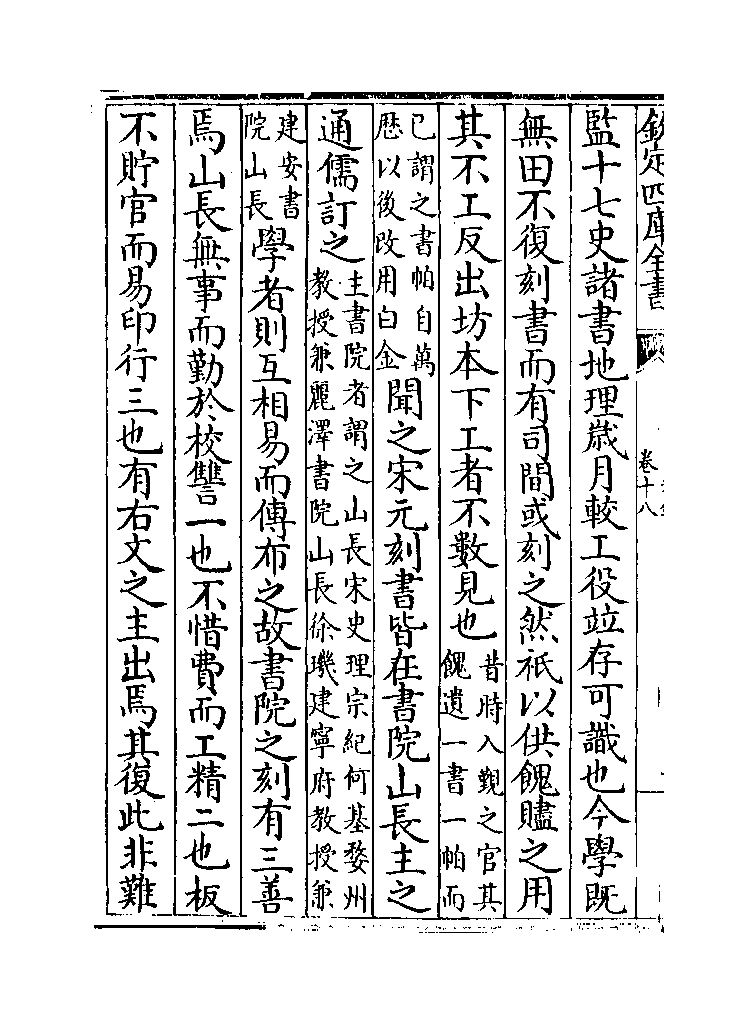 欽定四庫全書
卷十八
監十七史諸書地理歳月較工役竝存可識也今學既
無田不復刻書而有司間或刻之然祇以供餽贐之用
其不工反出坊本下工者不數見也
昔時入覲之官其
餽遺一書一帕而
已謂之書帕自萬
厯以後改用白金
聞之宋元刻書皆在書院山長主之
通儒訂之
主書院者謂之山長宋史理宗紀何基婺州
教授兼麗澤書院山長徐璣建寧府教授兼
建安書
院山長
學者則互相易而傳布之故書院之刻有三善
焉山長無事而勤於校讐一也不惜費而工精二也板
不貯官而易印行三也有右文之主出焉其復此非難